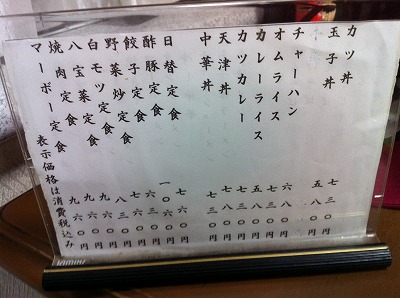 カツ丼 七三〇円
玉子丼 五八〇円
チャーハン 六八〇円
オムライス 七三〇円
カレーライス 五八〇円
カツカレー 七三〇円
天津丼 七八〇円
中華丼 七三〇円
日替定食 七六〇円
酢豚定食 一〇六〇円
餃子定食 六三〇円
野菜炒定食 七六〇円
白モツ定食 八三〇円
八宝菜定食 九六〇円
焼肉定食 九六〇円
マーボー定食 九六〇円
表示価格は消費税込み